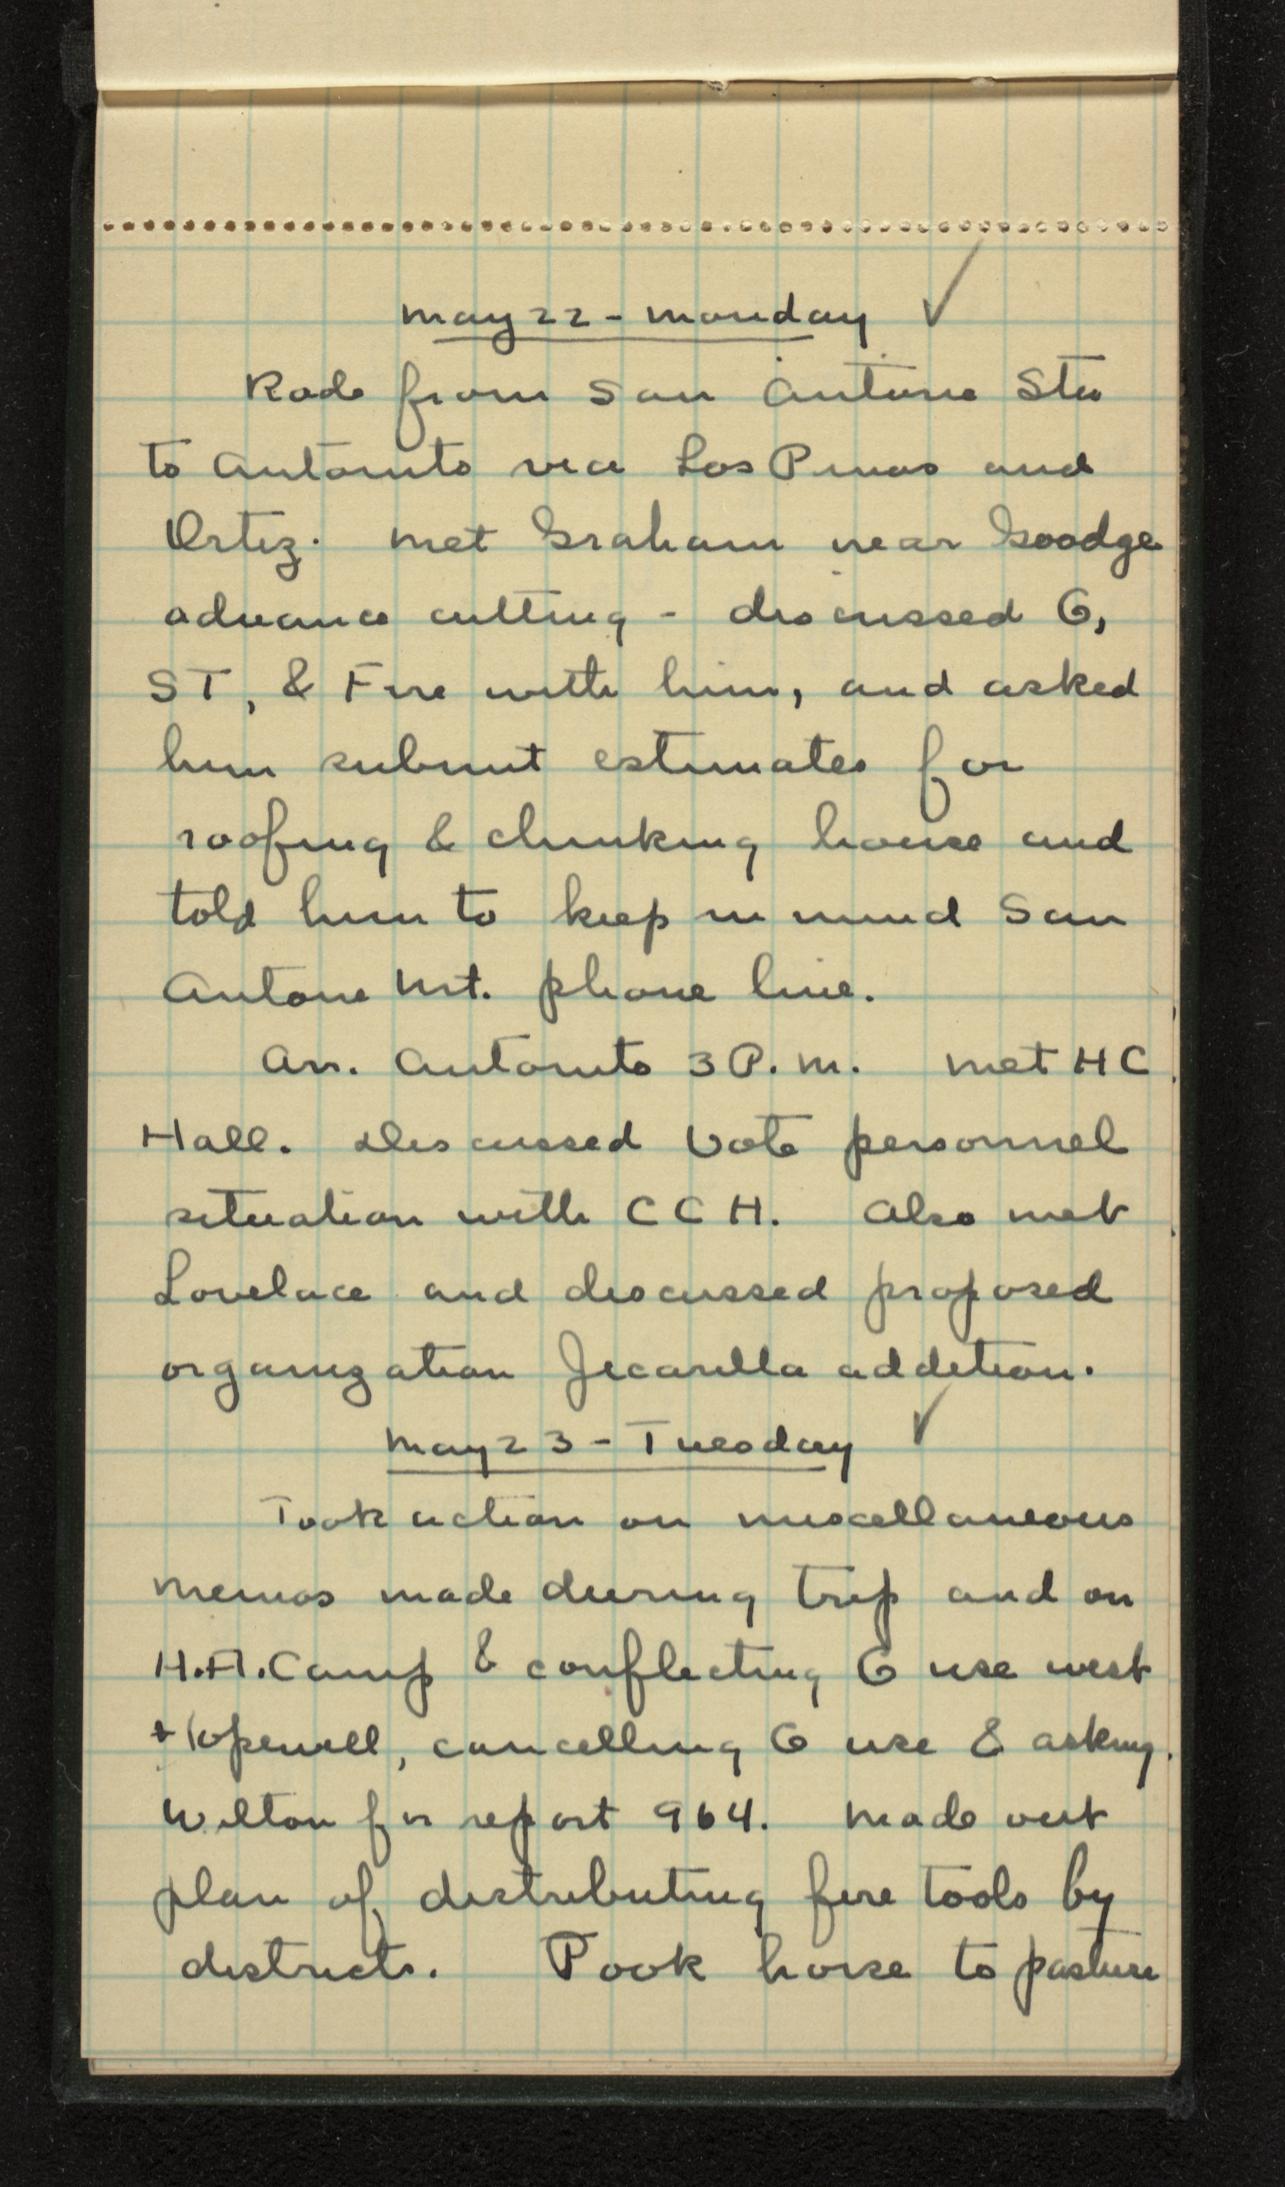 May 22 - Monday ✓
Rode from San Antone Sta
to Antonito via Los Pinos and
Ortiz. Met Graham near
advance cutting - discussed G,
ST, & Fire with him, and asked
him submit estimates for
roofing & chinking house and
told him to keep in mind San
Antone Mt. phone line.
Arr. Antonito 3 P.M. Met HC
Hall. Discussed Vote personnel
situation with CCH. Also met
Lovelace and discussed proposed
organization Jicarilla addition.
May 23 - Tuesday ✓
Took action on miscellaneous
memos made during trip and on
H.A. Camp & conflecting G use west
Hopewell, cancelling G use & asking
Wilton for report 964. Made out
plan of distributing fire tools by
districts. Took horse to pasture